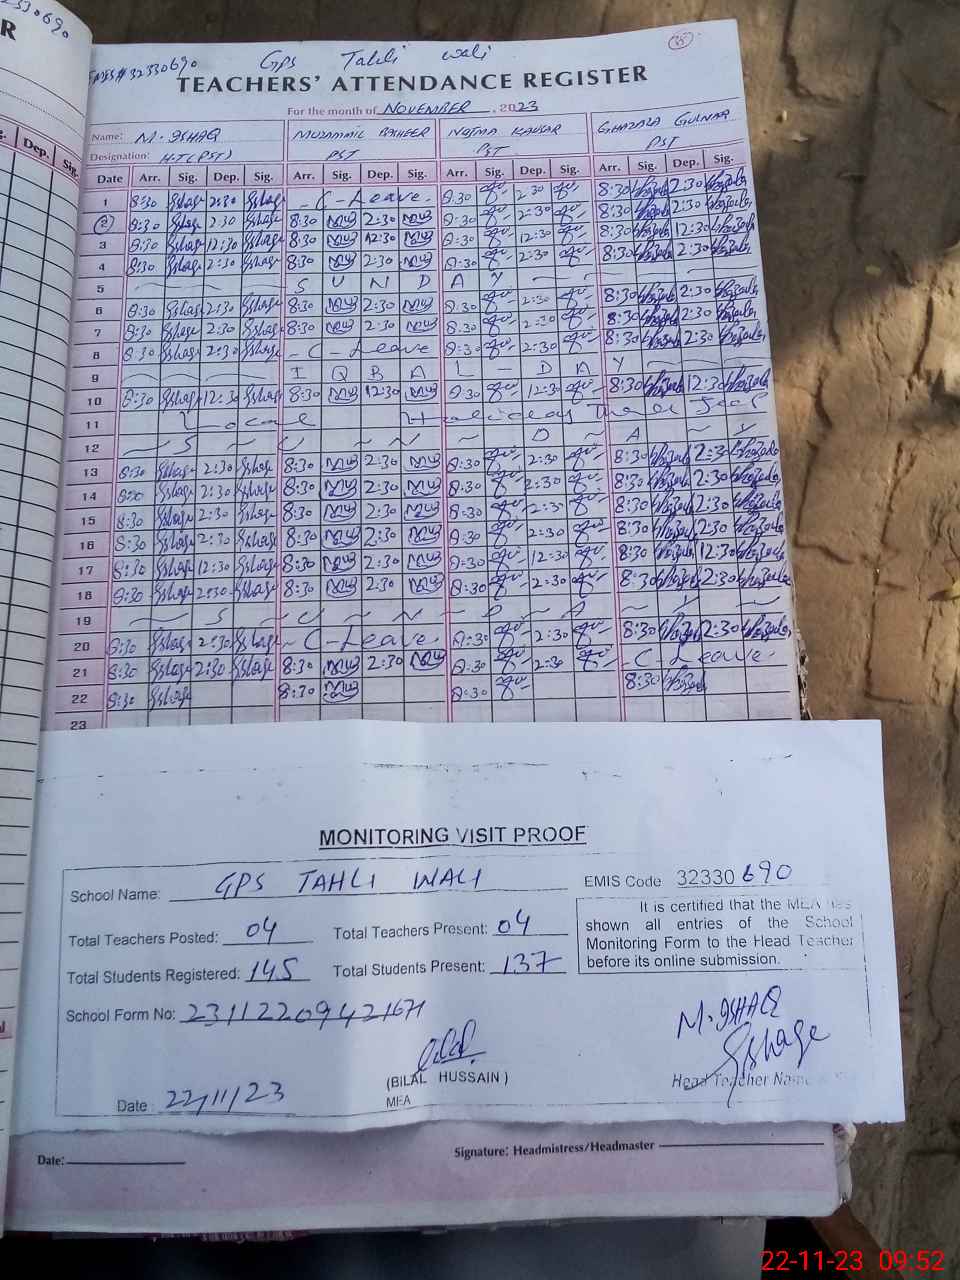 32330690
R
Dep. Sig.
EMIS# 32330690 GPS Tahli wali 35
TEACHERS' ATTENDANCE REGISTER
For the month of NOVEMBER, 2023
Name: M. ISHAQ MUZAMMIL BASHEER NAJMA KAUSAR GHAZALA GULNAR
Designation: H.T (PST) PST PST PST
Date Arr. Sig. Dep. Sig. Arr. Sig. Dep. Sig. Arr. Sig. Dep. Sig. Arr. Sig. Dep. Sig.
1 8:30 Ishaq 2:30 Ishaq C-Leave 8:30 2:30 8:30 Ghazala 2:30 Ghazala
2 8:30 Ishaq 2:30 Ishaq 8:30 2:30 8:30 2:30 8:30 Ghazala 2:30 Ghazala
3 8:30 Ishaq 12:30 Ishaq 8:30 12:30 8:30 12:30 8:30 Ghazala 12:30 Ghazala
4 8:30 Ishaq 2:30 Ishaq 8:30 2:30 8:30 2:30 8:30 Ghazala 2:30 Ghazala
5 S U N D A Y
6 8:30 Ishaq 2:30 Ishaq 8:30 2:30 8:30 2:30 8:30 Ghazala 2:30 Ghazala
7 8:30 Ishaq 2:30 Ishaq 8:30 2:30 8:30 2:30 8:30 Ghazala 2:30 Ghazala
8 8:30 Ishaq 2:30 Ishaq C-Leave 8:30 2:30 8:30 Ghazala 2:30 Ghazala
9 I Q B A L - D A Y
10 8:30 Ishaq 12:30 Ishaq 8:30 12:30 8:30 12:30 8:30 Ghazala 12:30 Ghazala
11 Local Holiday
12 S U N D A Y
13 8:30 Ishaq 2:30 Ishaq 8:30 2:30 8:30 2:30 8:30 Ghazala 2:30 Ghazala
14 8:30 Ishaq 2:30 Ishaq 8:30 2:30 8:30 2:30 8:30 Ghazala 2:30 Ghazala
15 8:30 Ishaq 2:30 Ishaq 8:30 2:30 8:30 2:30 8:30 Ghazala 2:30 Ghazala
16 8:30 Ishaq 2:30 Ishaq 8:30 2:30 8:30 2:30 8:30 Ghazala 2:30 Ghazala
17 8:30 Ishaq 12:30 Ishaq 8:30 12:30 8:30 12:30 8:30 Ghazala 12:30 Ghazala
18 8:30 Ishaq 2:30 Ishaq 8:30 2:30 8:30 2:30 8:30 Ghazala 2:30 Ghazala
19 S U N D A Y
20 8:30 Ishaq 2:30 Ishaq C-Leave 8:30 2:30 8:30 Ghazala 2:30 Ghazala
21 8:30 Ishaq 2:30 Ishaq 8:30 2:30 8:30 2:30 C-Leave
22 8:30 Ishaq 8:30 8:30 8:30 Ghazala
23
MONITORING VISIT PROOF
School Name: GPS TAHLI WALI EMIS Code 32330690
Total Teachers Posted: 04 Total Teachers Present: 04
Total Students Registered: 145 Total Students Present: 137
It is certified that the MEA has
shown all entries of the School
Monitoring Form to the Head Teacher
before its online submission.
School Form No: 23112209421671
M. ISHAQ
Ishaq
(BILAL HUSSAIN)
MEA
Head Teacher Name
Date 22/11/23
Date: Signature: Headmistress/Headmaster
22-11-23 09:52